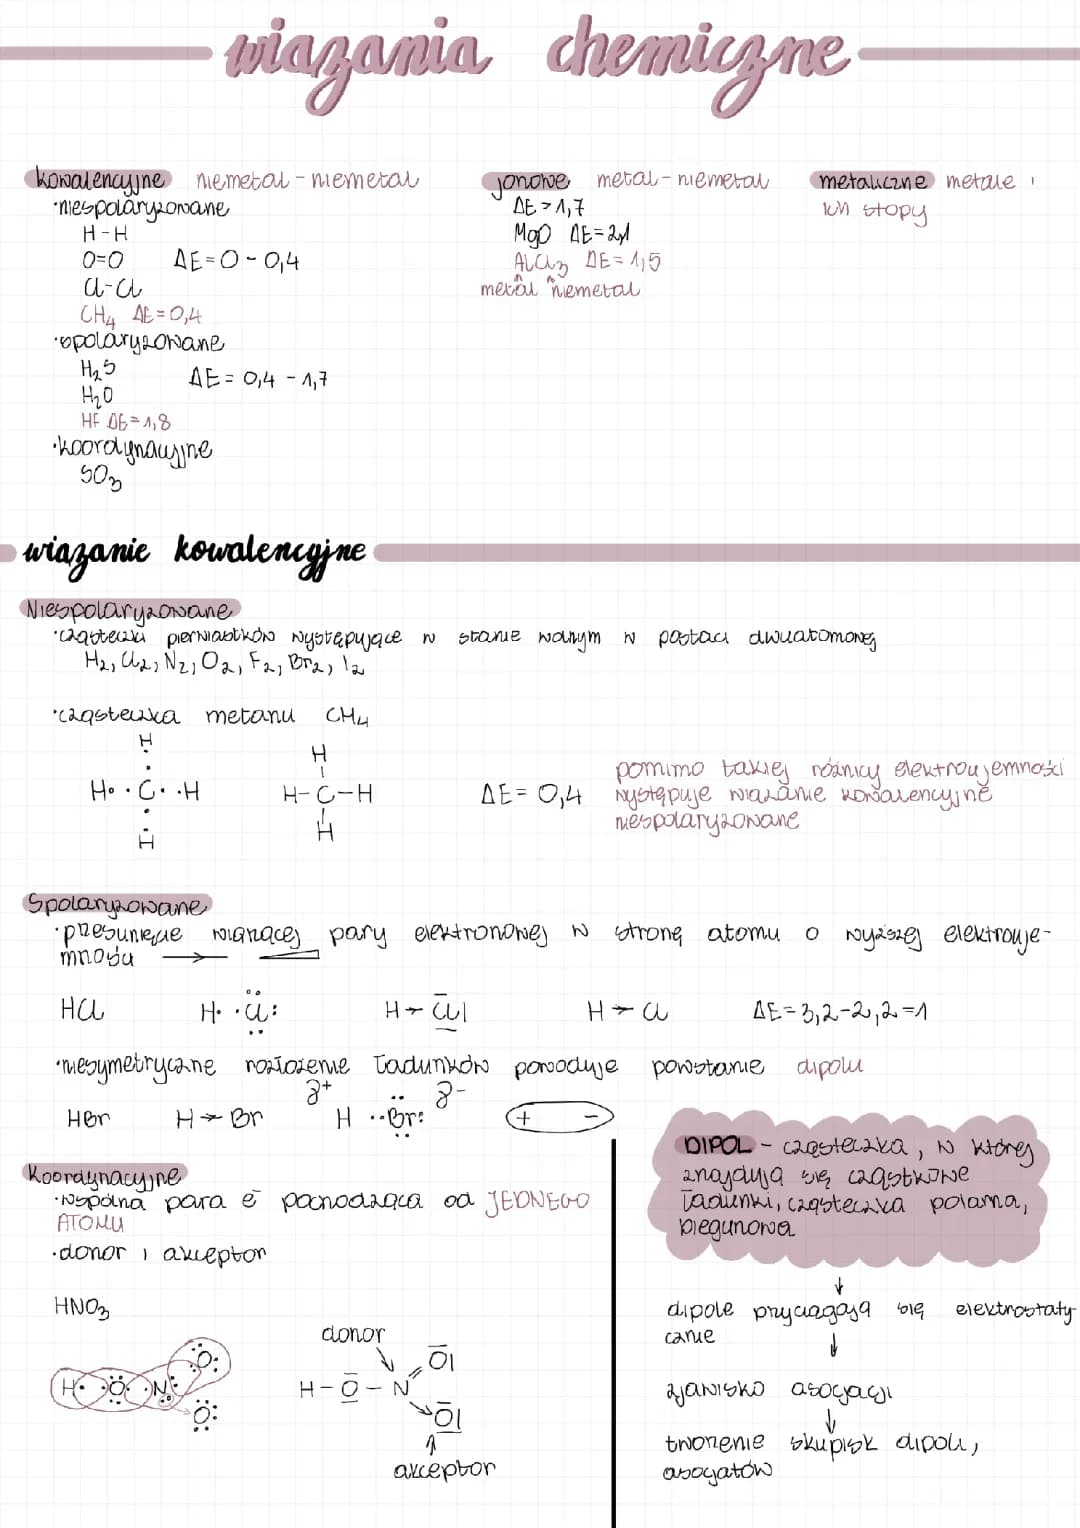 wiązania chemiczne
kowalencyjne niemetal - niemetal
•niespolaryzowane
H-H
O=O ΔE=0-0,4
Cl-Cl
CH₄ ΔE=0,4
•spolaryzowane
H₂S ΔE= 0,4 - 1,7
H₂O
HF ΔE=1,8
•koordynacyjne
SO₃
jonowe metal - niemetal
ΔE>1,7
MgO ΔE=2,1
AlCl₃ ΔE=1,5
metal niemetal
metaliczne metale i
ich stopy
wiązanie kowalencyjne
Niespolaryzowane
•cząsteczki pierwiastków występujące w stanie wolnym w postaci dwuatomowej
H₂, Cl₂, N₂, O₂, F₂, Br₂, I₂
•cząsteczka metanu CH₄
H
H• •C• •H
H
H
H-C-H
H
ΔE= 0,4
pomimo takiej różnicy elektroujemności
występuje wiązanie kowalencyjne
niespolaryzowane
Spolaryzowane
•przesunięcie wiążącej pary elektronowej w stronę atomu o wyższej elektrouje-
mności →
HCl H• •Cl: H→Cl| H→Cl ΔE=3,2-2,2=1
•niesymetryczne rozłożenie ładunków powoduje powstanie dipolu
δ+ δ-
HBr H→Br H ••Br: + -
DIPOL - cząsteczka, w której
znajdują się cząstkowe
ładunki, cząsteczka polarna,
biegunowa
↓
dipole przyciągają się elektrostaty-
cznie
↓
zjawisko asocjacji
↓
tworzenie skupisk dipoli,
asocjatów
Koordynacyjne
•wspólna para ē pochodząca od JEDNEGO
ATOMU
•donor i akceptor
HNO₃
H• •O• •N: O:
O:
donor
O|
H-O-N
O|
↑
akceptor